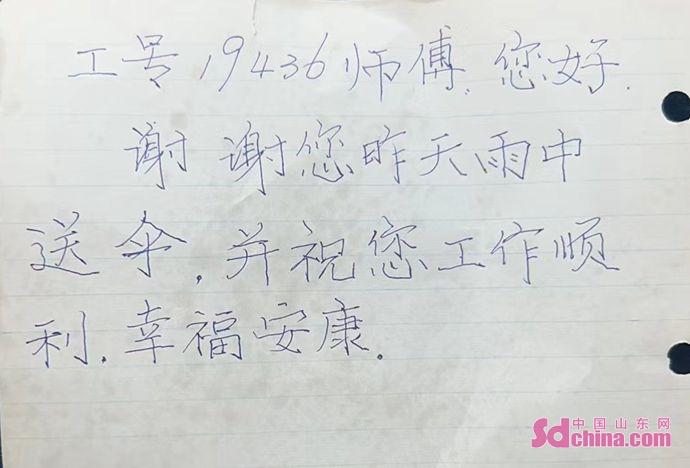 工号19436师傅.您好.
谢谢您昨天雨中
送伞,并祝您工作顺
利.幸福安康.
中国山东网
Sdchina.com